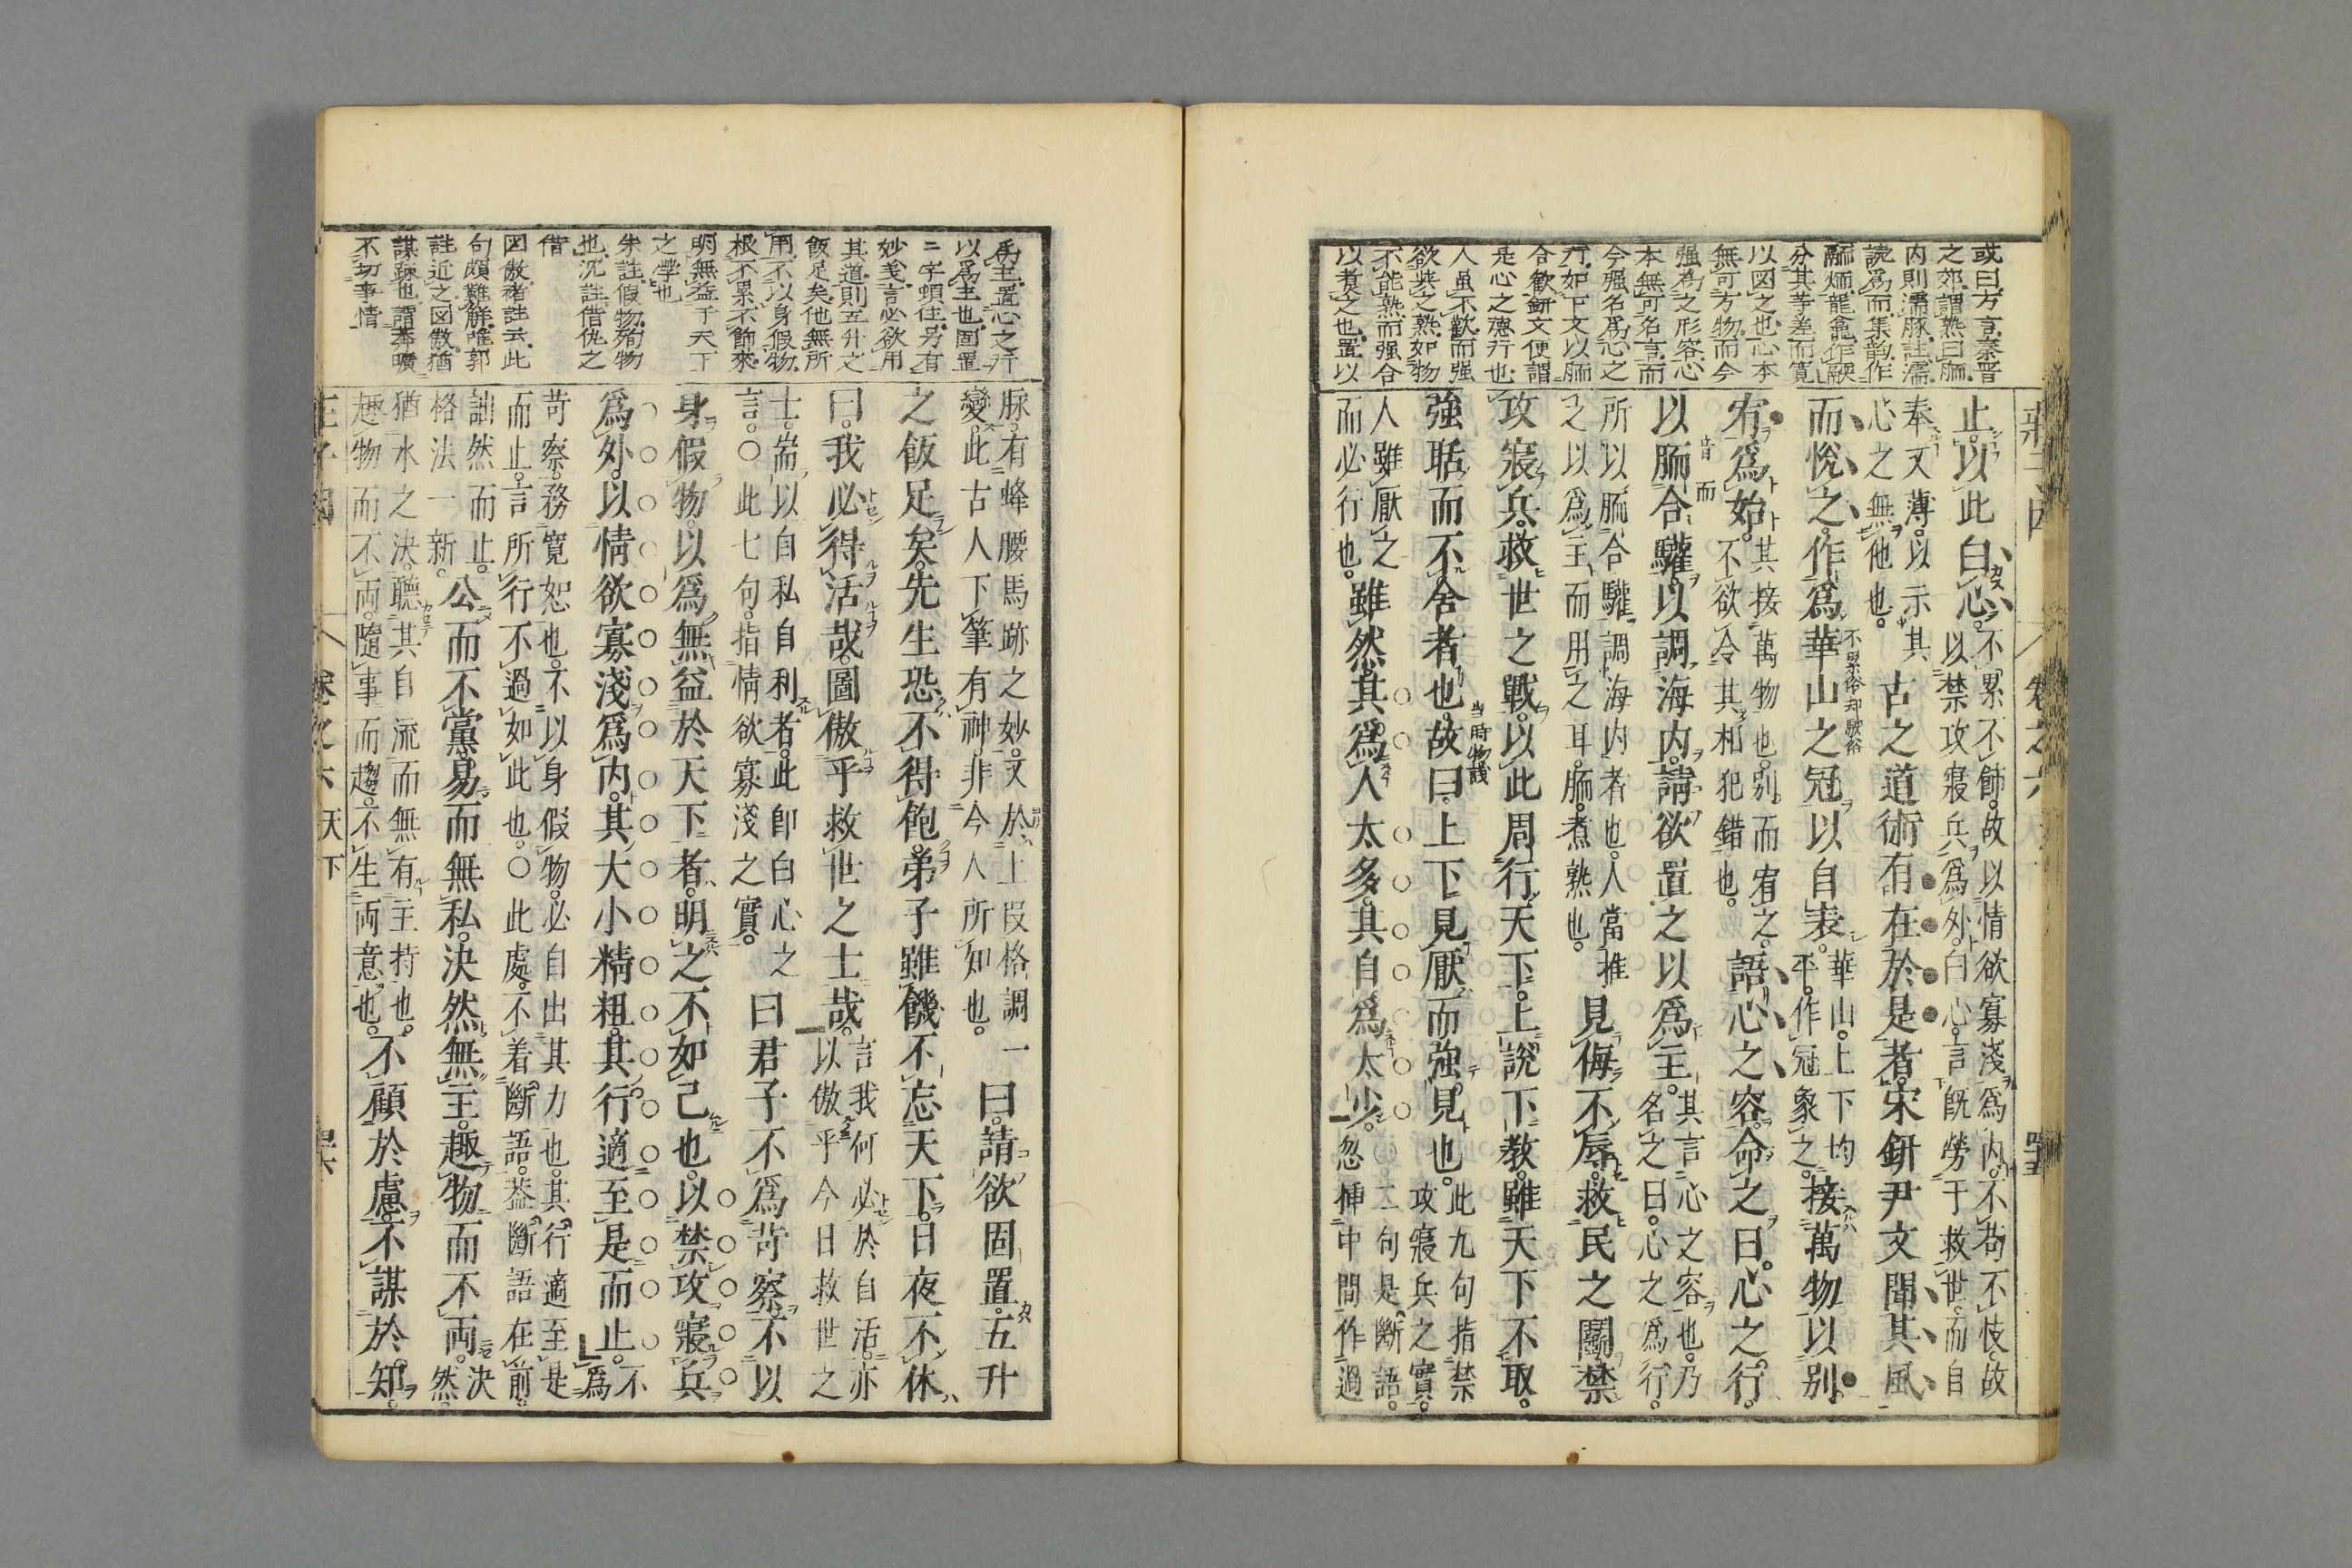 或曰方言秦晉
之郊謂熟曰胹
内則濡豚註濡
読為而集韵作
分其等差而寛
以図之也心本
無可方物而今
强為之形容心
本無可名言而
今强名為心之
行如下文以胹
合歡鈃文便謂
是心之徳行也
人虽不歡而强
欲與之熟如物
不能熟而强合
以煮之也置以
止。以此白心。不累不飾。故以情欲寡淺為内。不苟不忮。故
以禁攻寢兵為外。白心。言既勞于救世。而自
奉又薄。以示其
心之無他也。古之道術有在於是者。宋鈃尹文聞其風
而悅之。作爲華山之冠以自表。華山。上下均
平。作冠象之。接萬物以別
不累俗
宥爲始。其接萬物也。別而宥之。
不欲令其相犯錯也。語心之容。命之曰。心之行。
以胹合驩。以調海内。請欲置之以爲主。其言心之容也。乃
名之曰。心之為行。
音而
所以胹合驩。調海内者也。人當推
之以為主而用之耳。胹。煮熟也。見侮不辱。救民之鬭。禁
攻寢兵。救世之戰。以此周行天下。上說下教。雖天下不取。
強聒而不舍者也。故曰。上下見厭而強見也。此九句指禁
攻寢兵之實。
人雖厭之
而必行也。雖然。其爲人太多。其自爲太少。二句是斷語。
忽插中間作過
莊子因 卷之六 天下
為主置心之行
以為主也固置
二字蝢往另有
妙義言必欲用
其道則五升之
飯足矣他無所
用不以身假物
根不累不飾來
明無益于天下
之學也
朱註假物殉物
也沉註借仇之
借
図傲褚註云此
句頗難解唯郭
註近之図傲猶
謀疎也謂莽曠
不切事情
脉。有蜂腰馬跡之妙。文於上段格調一
變。此古人下筆有神。非今人所知也。曰。請欲固置。五升
之飯足矣。先生恐不得飽。弟子雖饑不忘天下。日夜不休
曰。我必得活哉。圖傲乎救世之士哉。言我何必於自活。亦
以傲乎今日救世之
士。耑以自私自利者。此即白心之
言。○此七句。指情欲寡淺之實。曰君子不爲苛察。不以
身假物。以爲無益於天下者。明之不如己也。以禁攻寢兵
爲外。以情欲寡淺爲内。其大小精粗。其行適至是而止。不
為
苛察。務寛恕也。不以身假物。必自出其力也。其行適至是
而止。言所行不過如此也。○此處。不着斷語。葢斷語在前。
詘然而止。
格法一新。公而不黨。易而無私。決然無主。趣物而不両。決
然。
猶水之決。聽其自流而無有主持也。
趣物而不両。隨事而趨。不生両意也。不顧於慮。不謀於知。